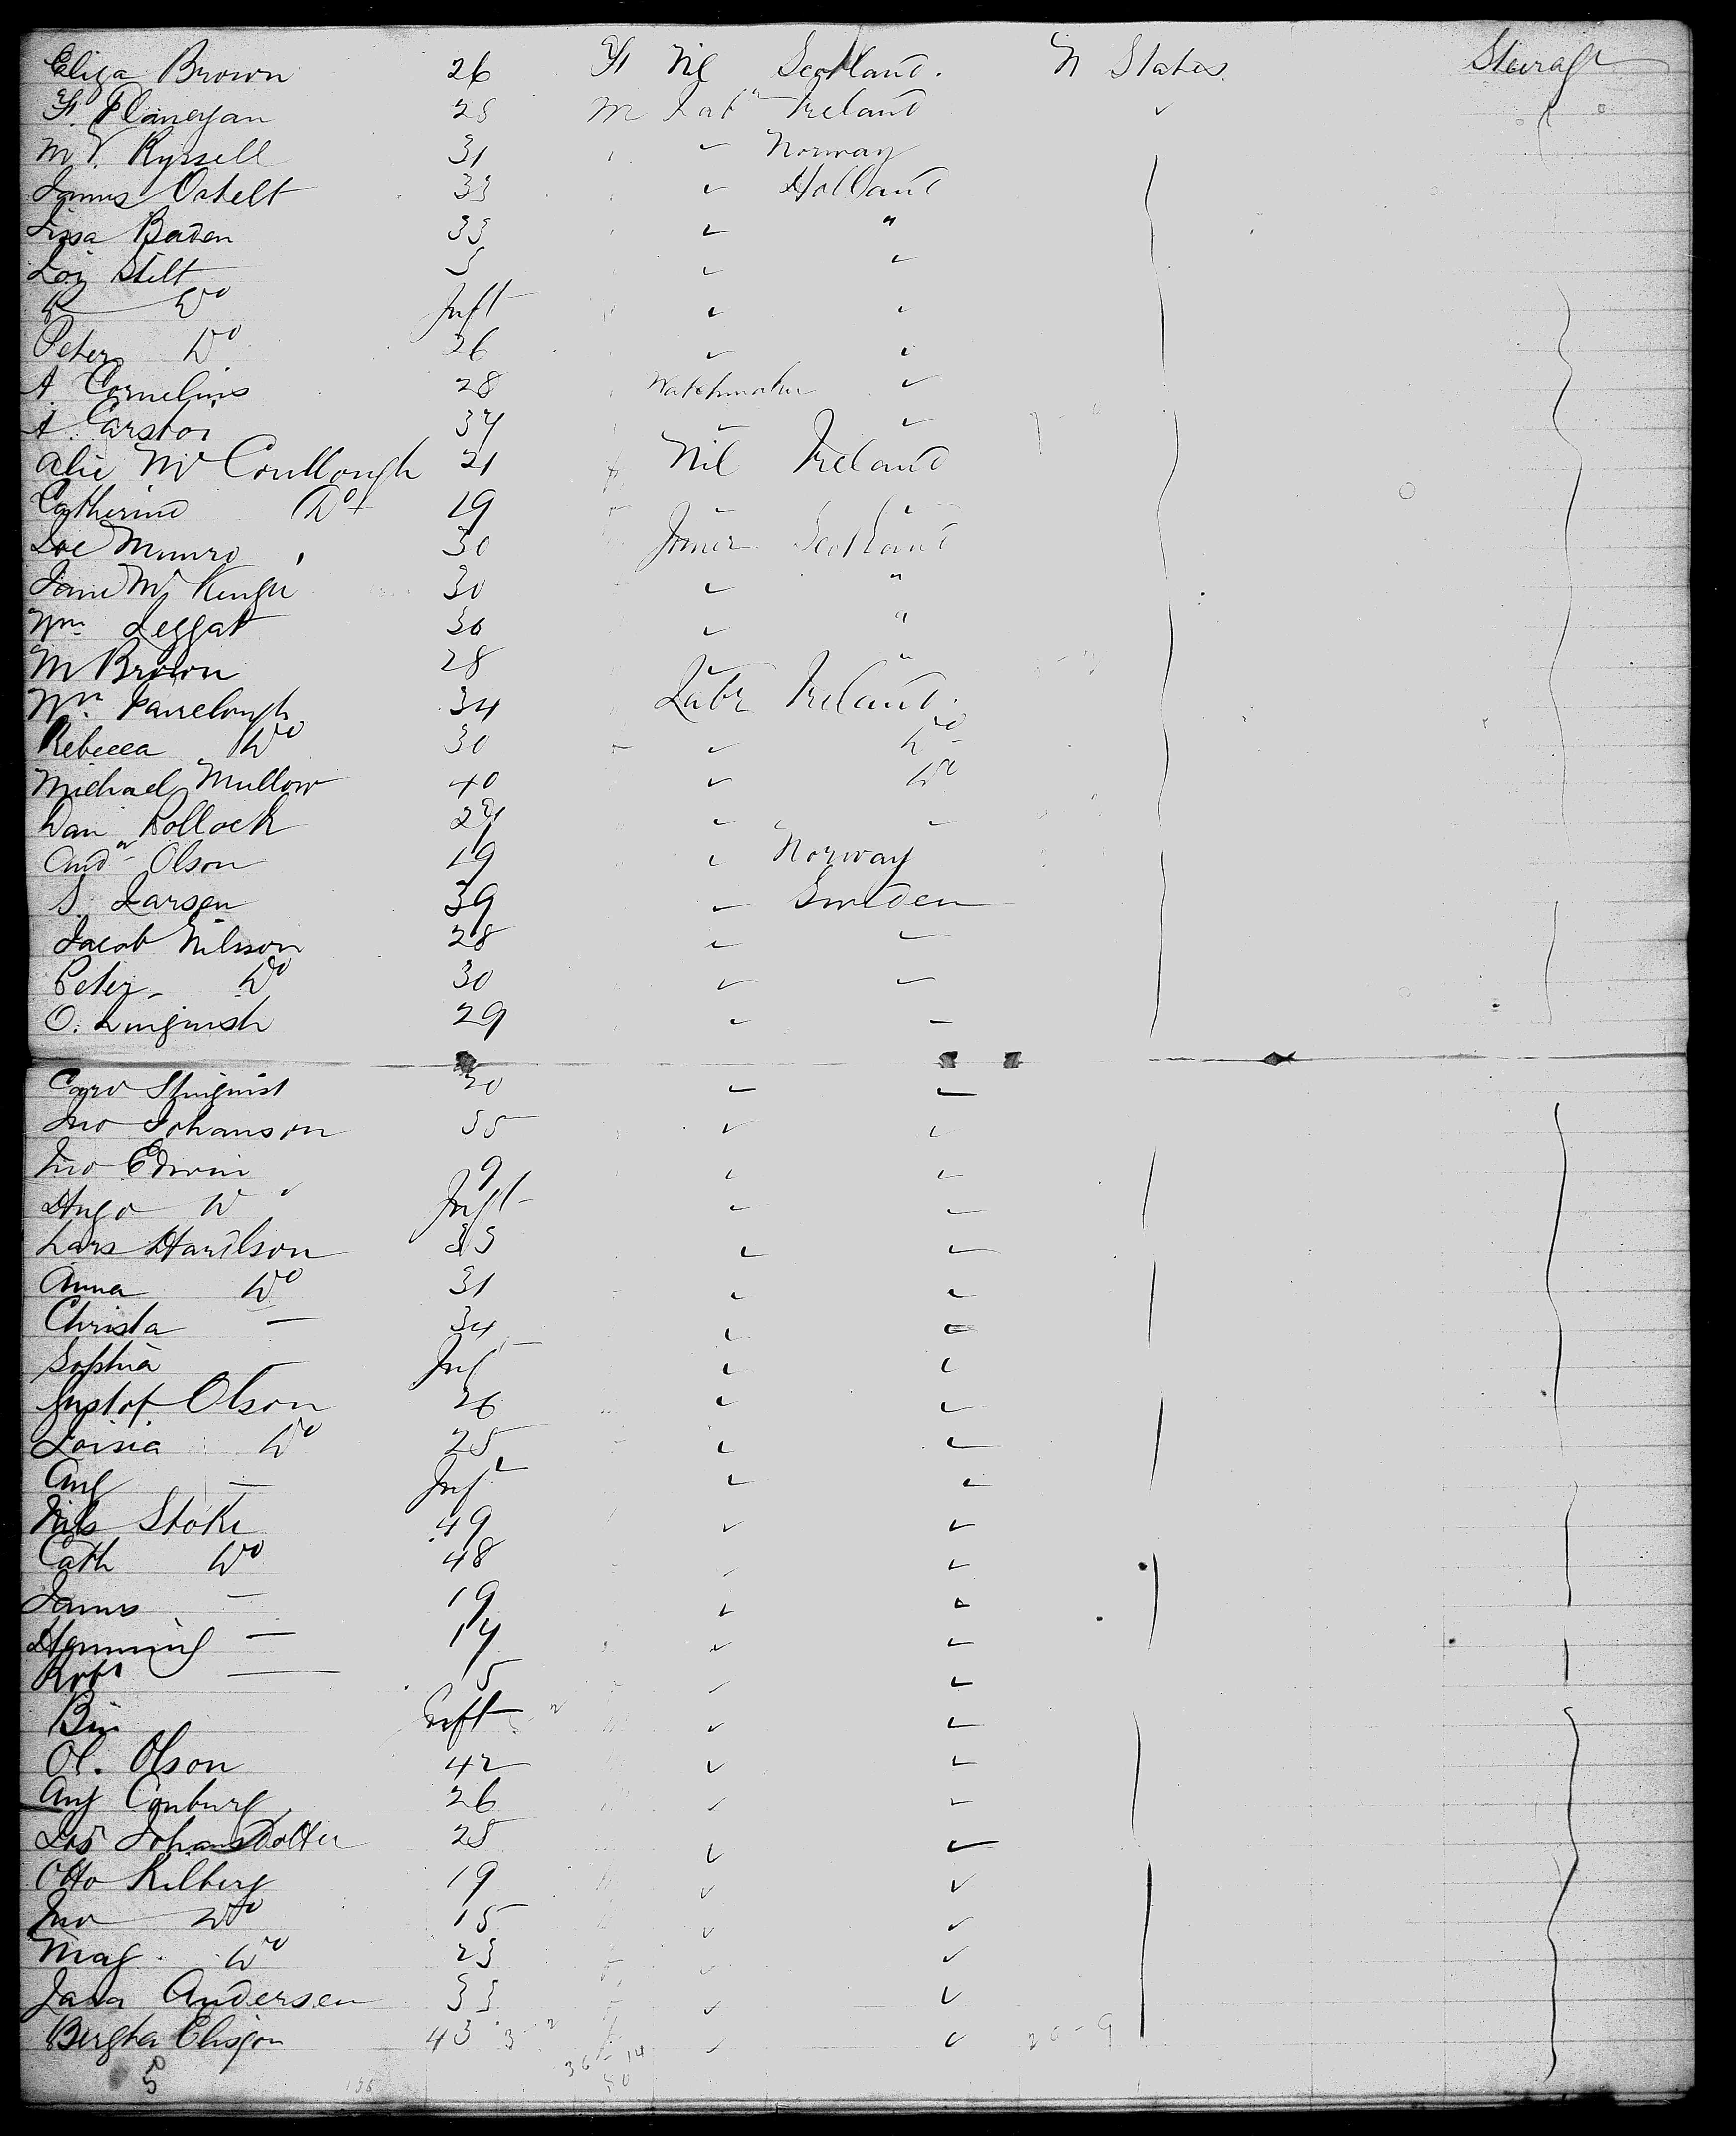 Eliza Brown 26 F Nil Scotland. U States. Steerage
F. Flanegan 28 M Labr Ireland ✓
M V. Kyrsell 31 " Norway
James Oatelt 33 " Holland
Lisa Baden 33 " "
Loi Stilt 5 " "
Do Inft " "
Peter Do 26 " "
A. Cornelius 28 Watchmaker "
A. Carstoi 34 " "
Alie Mc Coullough 21 f Nil Ireland
Catherine Do 19 " "
Joe Munro 30 Joiner Scotland
Jame Mc Kenzie 30 " "
Wm Leggat 30 " "
M Brown 28 " "
Wm Fairclough 34 Labr Ireland.
Rebecca Do 30 " Do
Michael Mullow 40 " Do
Dan Pollock 24 " "
Andw Olson 19 " Norway
S. Larsen 39 " Sweden
Jacob Nilsson 28 " "
Peter Do 30 " "
O. Linquish 29 " "
Caro Stinquist 20 " "
Jno Johanson 35 " "
Jno Edwin 9 " "
Hugo Do Inft " "
Lars Harilson 33 " "
Anna Do 31 " "
Christa — 34 " "
Sophia — Inft " "
Gustof Olson 26 " "
Loisia Do 25 " "
Aug — Inft " "
Nils Stoke 49 " "
Cath Do 48 " "
James — 19 " "
Hemming — 14 " "
Robt — 5 " "
Bin Inft " "
Ol. Olson 42 " "
Aug Conburg 26 " "
Los Johansdotter 25 " "
Otto Kilberg 19 " "
Jno Do 15 " "
Mag Do 23 " "
Jana Andersen 33 " "
Bergta Elisson 43 " "